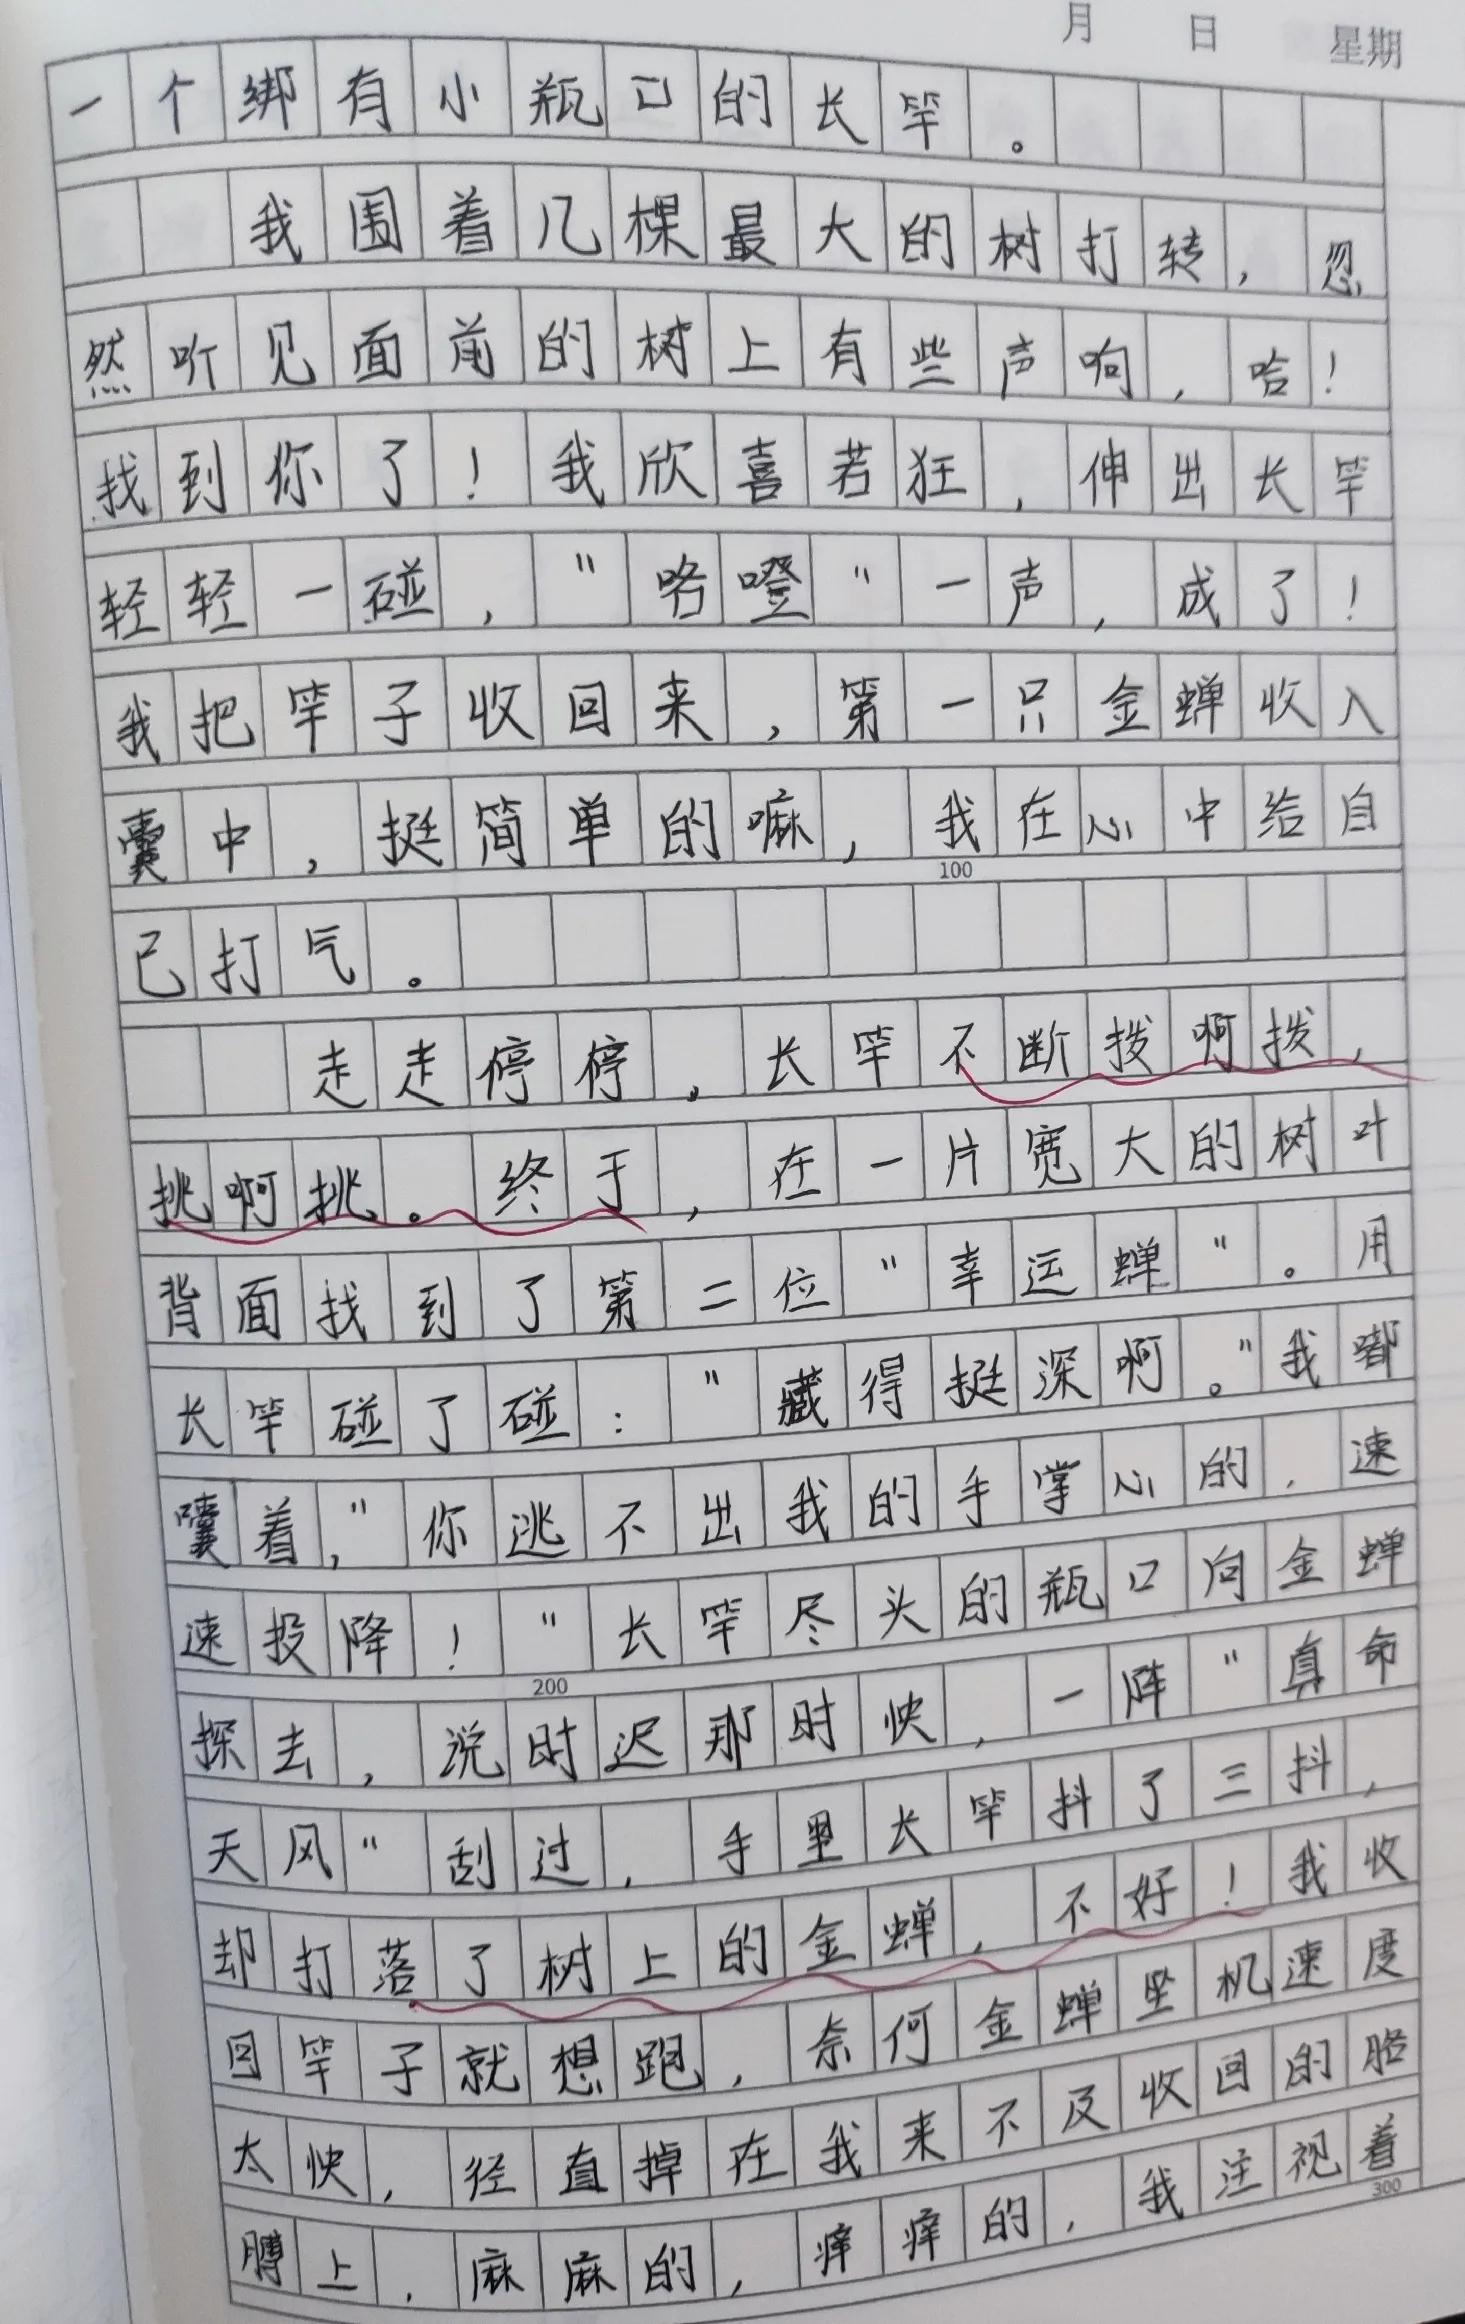 月 日 星期
一个绑有小瓶口的长竿。
我围着几棵最大的树打转，忽
然听见面前的树上有些声响，哈！
找到你了！我欣喜若狂，伸出长竿
轻轻一碰，"咯噔"一声，成了！
我把竿子收回来，第一只金蝉收入
囊中，挺简单的嘛，我在心中给自
己打气。
100
走走停停，长竿不断拨啊拨，
挑啊挑。终于，在一片宽大的树叶
背面找到了第二位"幸运蝉"。用
长竿碰了碰："藏得挺深啊。"我嘟
囔着，"你逃不出我的手掌心的，速
速投降！"长竿尽头的瓶口向金蝉
200
探去，说时迟那时快，一阵"真命
天风"刮过，手里长竿抖了三抖，
却打落了树上的金蝉，不好！我收
回竿子就想跑，奈何金蝉坠机速度
太快，径直掉在我来不及收回的胳
膊上，麻麻的，痒痒的，我注视着
300